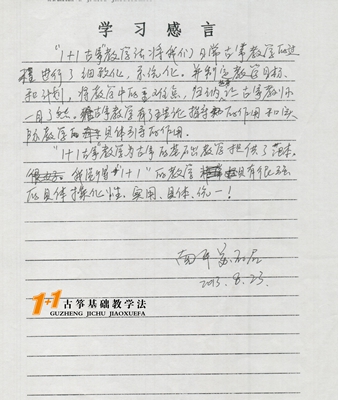 学习感言
"1+1古筝教学法"将我们日常古筝教学的过
程进行了细致化、系统化，并制定教学目标
和计划，将教学中的重难点，归纳
一目了然。古筝教学有了理论指导的作用和实
际教学的具体引导的作用。
"1+1古筝教学"为古筝的基础教学提供了范本。
"1+1"的教学具有很强
的具体操作性、实用、具体、统一！
2013.8.23
1+1古筝基础教学法
GUZHENG JICHU JIAOXUEFA